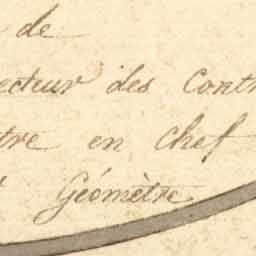 de
ecteur des Contr
tre en chef
Géomètre